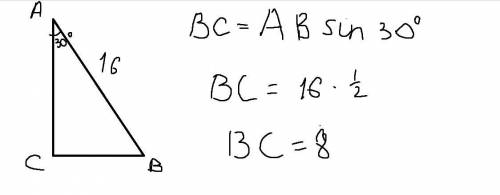 A
30°
16
C
B
BC = AB sin 30°
BC = 16 · 1/2
BC = 8